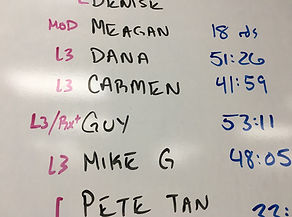 DENISE
MOD MEAGAN 18 rds
L3 DANA 51:26
L3 CARMEN 41:59
L3/Rx+ GUY 53:11
L3 MIKE G 48:05
PETE TAN 22: